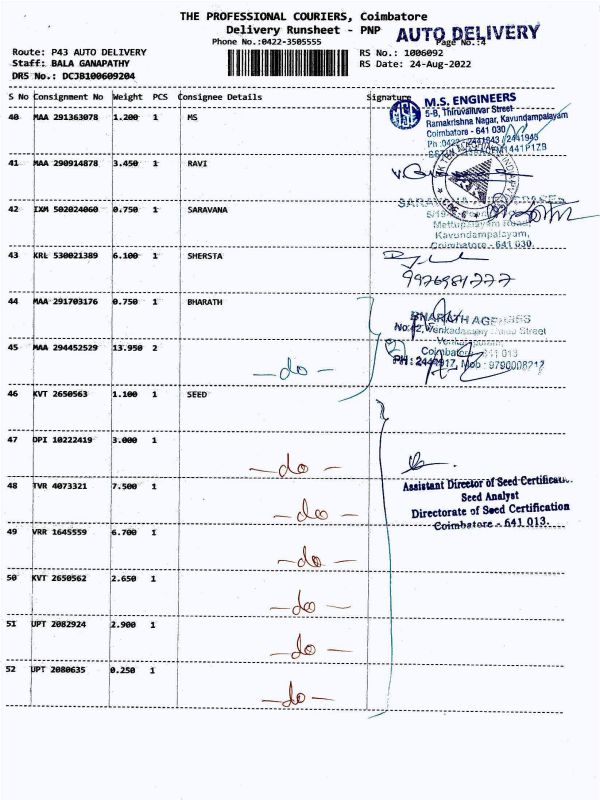 THE PROFESSIONAL COURIERS, Coimbatore
Delivery Runsheet - PNP
AUTO DELIVERY
Phone No.:0422-3505555
Page No.:4
Route: P43 AUTO DELIVERY
RS No.: 1006092
Staff: BALA GANAPATHY
RS Date: 24-Aug-2022
DRS No.: DCJB100609204
S No Consignment No Weight PCS Consignee Details Signature
40 MAA 291363078 1.200 1 MS
M.S. ENGINEERS
5-B, Thiruvalluvar Street
Ramakrishna Nagar, Kavundampalayam
Coimbatore - 641 030
Ph :0422 - 2441943 / 2441945
41 MAA 290914878 3.450 1 RAVI
42 IXM 502024060 0.750 1 SARAVANA
SARAVANA
Mettupalayam Road,
Kavundampalayam,
Coimbatore - 641 030.
43 KRL 530021389 6.100 1 SHERSTA
9976981777
44 MAA 291703176 0.750 1 BHARATH
BHARATH AGENCIES
Street
45 MAA 294452529 13.950 2
-do-
Coimbatore - 641 013
PH : Mob : 9790008217
46 KVT 2650563 1.100 1 SEED
47 DPI 10222419 3.000 1
-do-
Assistant Director of Seed Certification
Seed Analyst
Directorate of Seed Certification
Coimbatore - 641 013.
48 TVR 4073321 7.500 1
-do-
49 VRR 1645559 6.700 1
-do-
50 KVT 2650562 2.650 1
-do-
51 UPT 2082924 2.900 1
-do-
52 UPT 2080635 0.250 1
-do-